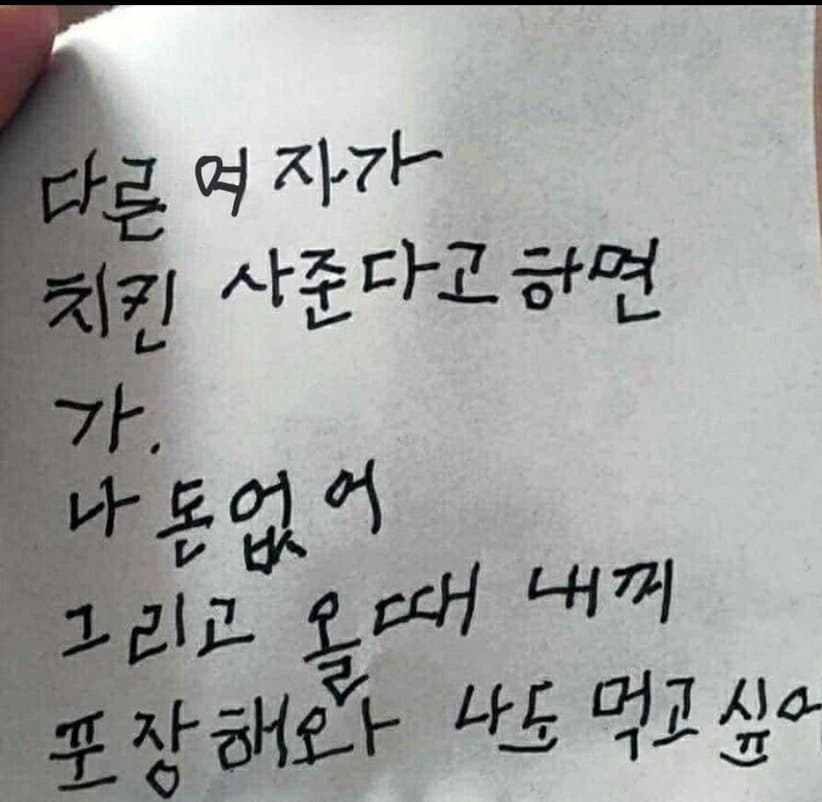 다른 여자가
치킨 사준다고하면
가.
나 돈없어
그리고 올때 내꺼
포장해와 나도 먹고싶어